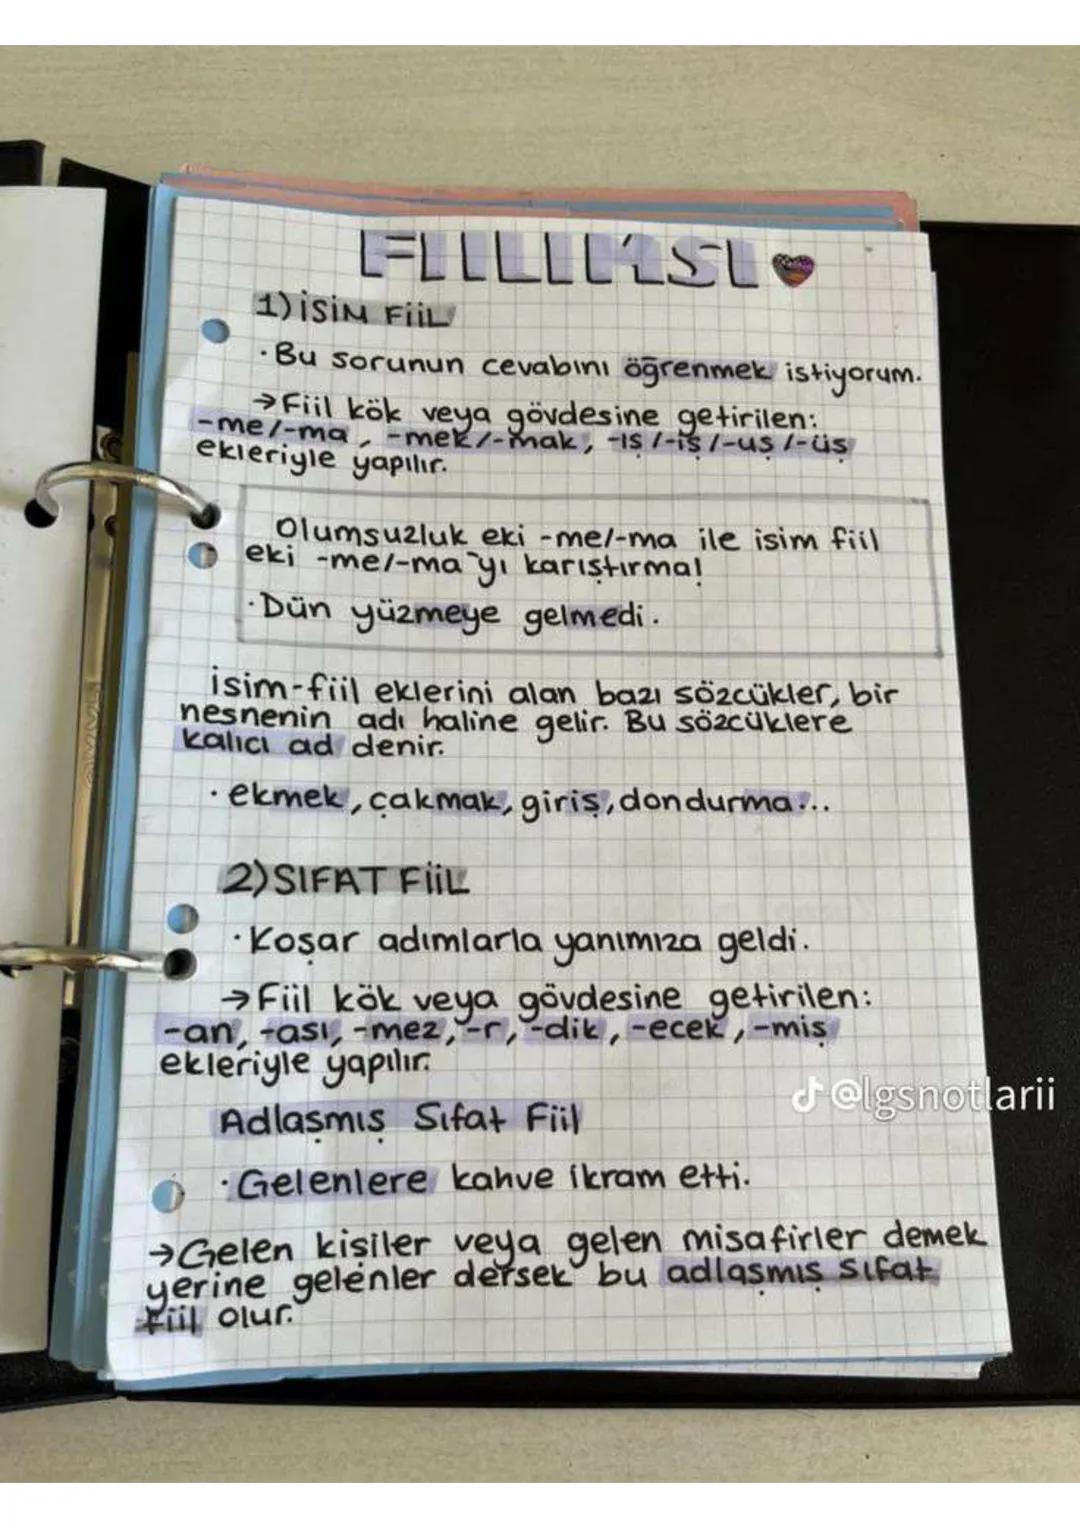 FİİLİMSİ
1) İSİM FİİL
· Bu sorunun cevabını öğrenmek istiyorum.
→ Fiil kök veya gövdesine getirilen:
-me/-ma, -mek/-mak, -ış/-iş/-uş/-üş
ekleriyle yapılır.
Olumsuzluk eki -me/-ma ile isim fiil
eki -me/-ma'yı karıştırma!
· Dün yüzmeye gelmedi.
İsim-fiil eklerini alan bazı sözcükler, bir
nesnenin adı haline gelir. Bu sözcüklere
kalıcı ad denir.
· ekmek, çakmak, giriş, dondurma...
2) SIFAT FİİL
· Koşar adımlarla yanımıza geldi.
→ Fiil kök veya gövdesine getirilen:
-an, -ası, -mez, -r, -dik, -ecek, -miş
ekleriyle yapılır.
@lgsnotlarii
Adlaşmış Sıfat Fiil
· Gelenlere kahve ikram etti.
→ Gelen kişiler veya gelen misafirler demek
yerine gelenler dersek bu adlaşmış sıfat
fiil olur.